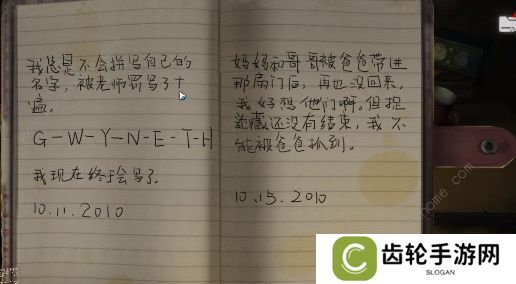 我总是不会拼写自己的
名字，被老师罚写了十
遍。
G-W-Y-N-E-T-H
我现在终于会写了。
10.11.2010
妈妈和哥哥被爸爸带进
那扇门后，再也没回来，
我好想他们啊。但捉
迷藏还没有结束，我不
能被爸爸抓到。
10.15.2010
齿轮手游网
SLOGAN